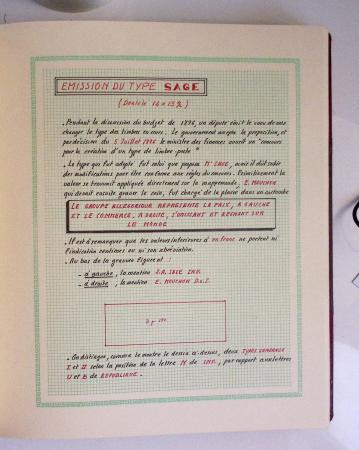 EMISSION DU TYPE SAGE
(Dentelé 14 x 13 ½)
. Pendant la discussion du budget de 1876, un député émit le vœu de voir
changer le type des timbres en cours. Le gouvernement accepta la proposition, et
par décision du 5 Juillet 1875 le ministre des finances ouvrit un "concours
pour la création d'un type de timbre-poste"
. Le type qui fut adopté fut celui que proposa Mr SAGE, mais il dût subir
des modifications pour être conforme aux règles du concours. Primitivement la
valeur se trouvait appliquée directement sur la mappemonde, E. MOUCHON
qui devait ensuite graver le coin, fut chargé de la placer dans un cartouche
LE GROUPE ALLEGORIQUE REPRESENTE LA PAIX, A GAUCHE
ET LE COMMERCE, A DROITE, S'UNISSANT ET REGNANT SUR
LE MONDE
. Il est à remarquer que les valeurs inférieures à un franc ne portent ni
l'indication centimes ou ni son abréviation.
. Au bas de la gravure figurent :
- à gauche, la mention J.A. SAGE INV.
- à droite, la mention E. MOUCHON D.&.S.
. On distingue, comme le montre le dessin ci-dessus, deux TYPES GENERAUX
I et II selon la position de la lettre N de INV. par rapport aux lettres
U et B de REPUBLIQUE.